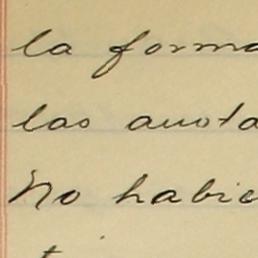 la forma
las anota
No habie